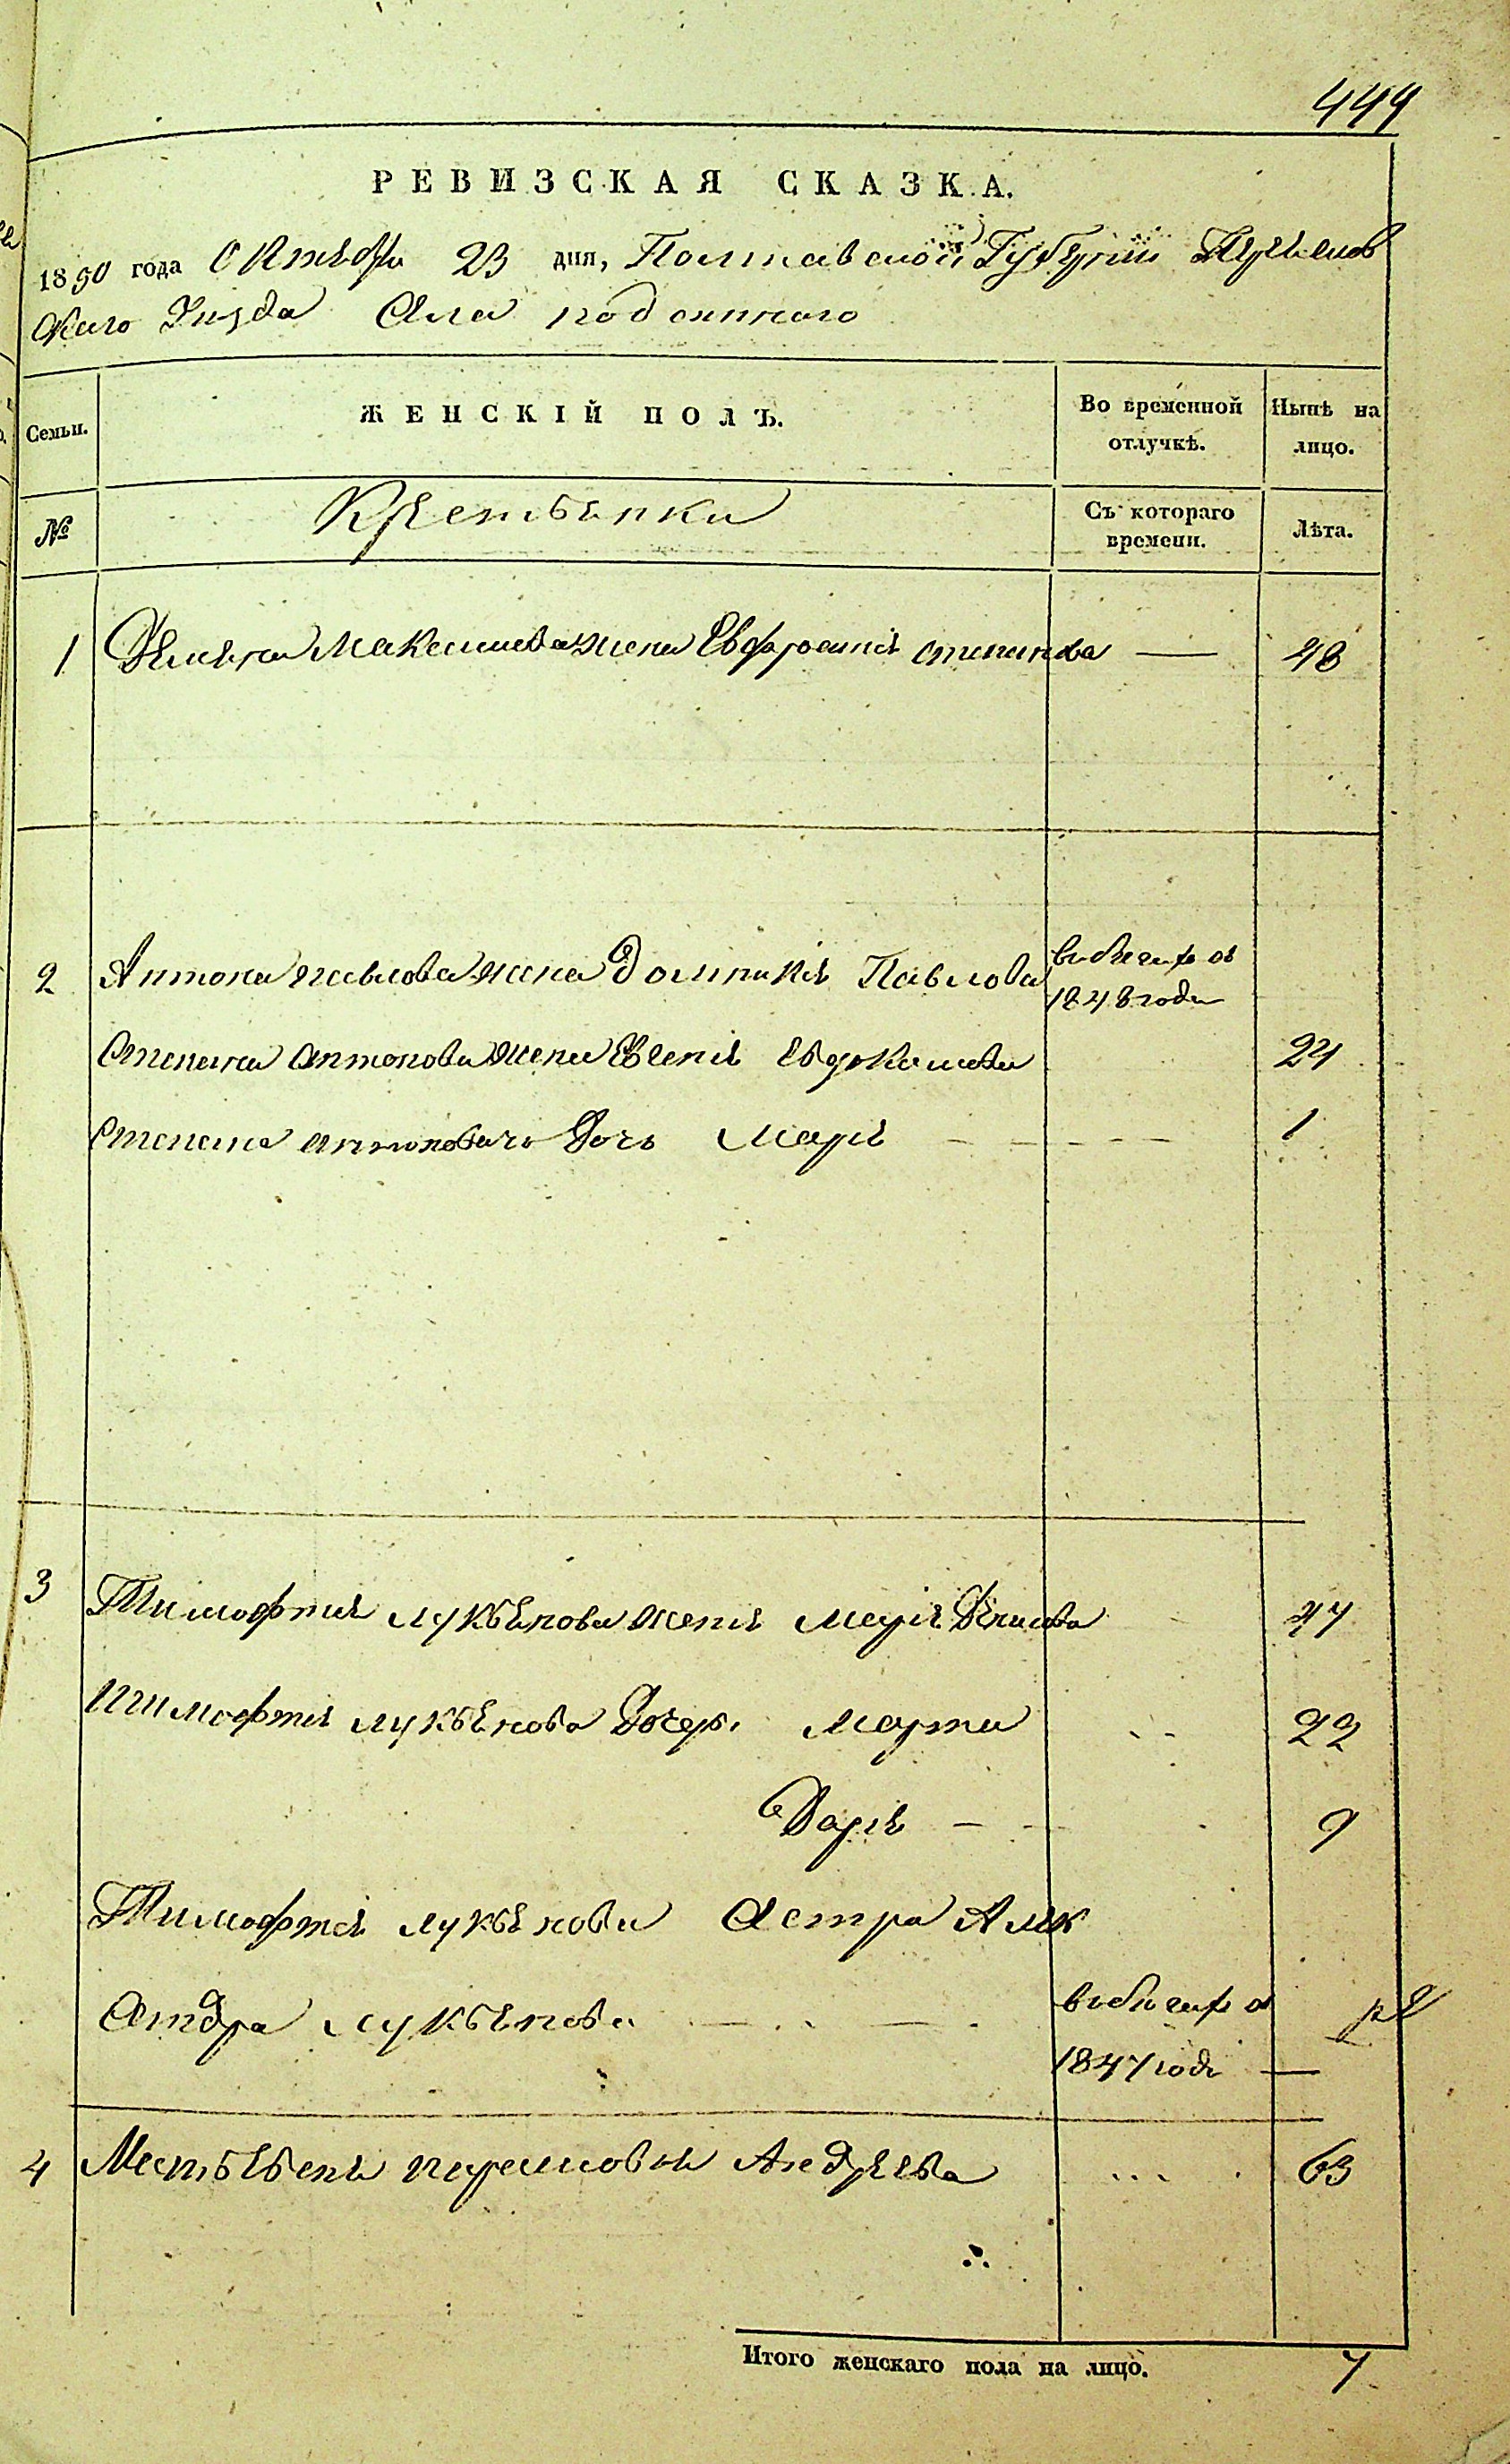 449
РЕВИЗСКАЯ СКАЗКА.
1850 года Октября 23 дня, Полтавской Губернии
скаго Уезда Села
Семьи. ЖЕНСКІЙ ПОЛЪ. Во временной отлучкѣ. Нынѣ на лицо.
№ Крестьянки Съ котораго времени. Лѣта.
1 Демяна Максимова жена Евфросиния степанова — 48
2 Антона павлова жена Домникия Павлова
1848 года
Степана антонова жена Евгения Евдокимова 24
Степана антоновича Дочь Мария 1
3 Тимофтия лукьянова жена Мария Денисова 47
Тимофтия лукьянова Дочери Марта 22
Дария — 9
Тимофтия лукьянова Сестра Алек
сандра лукьянова
1847 года —
4 Андреева 63
Итого женскаго пола на лицо. 7